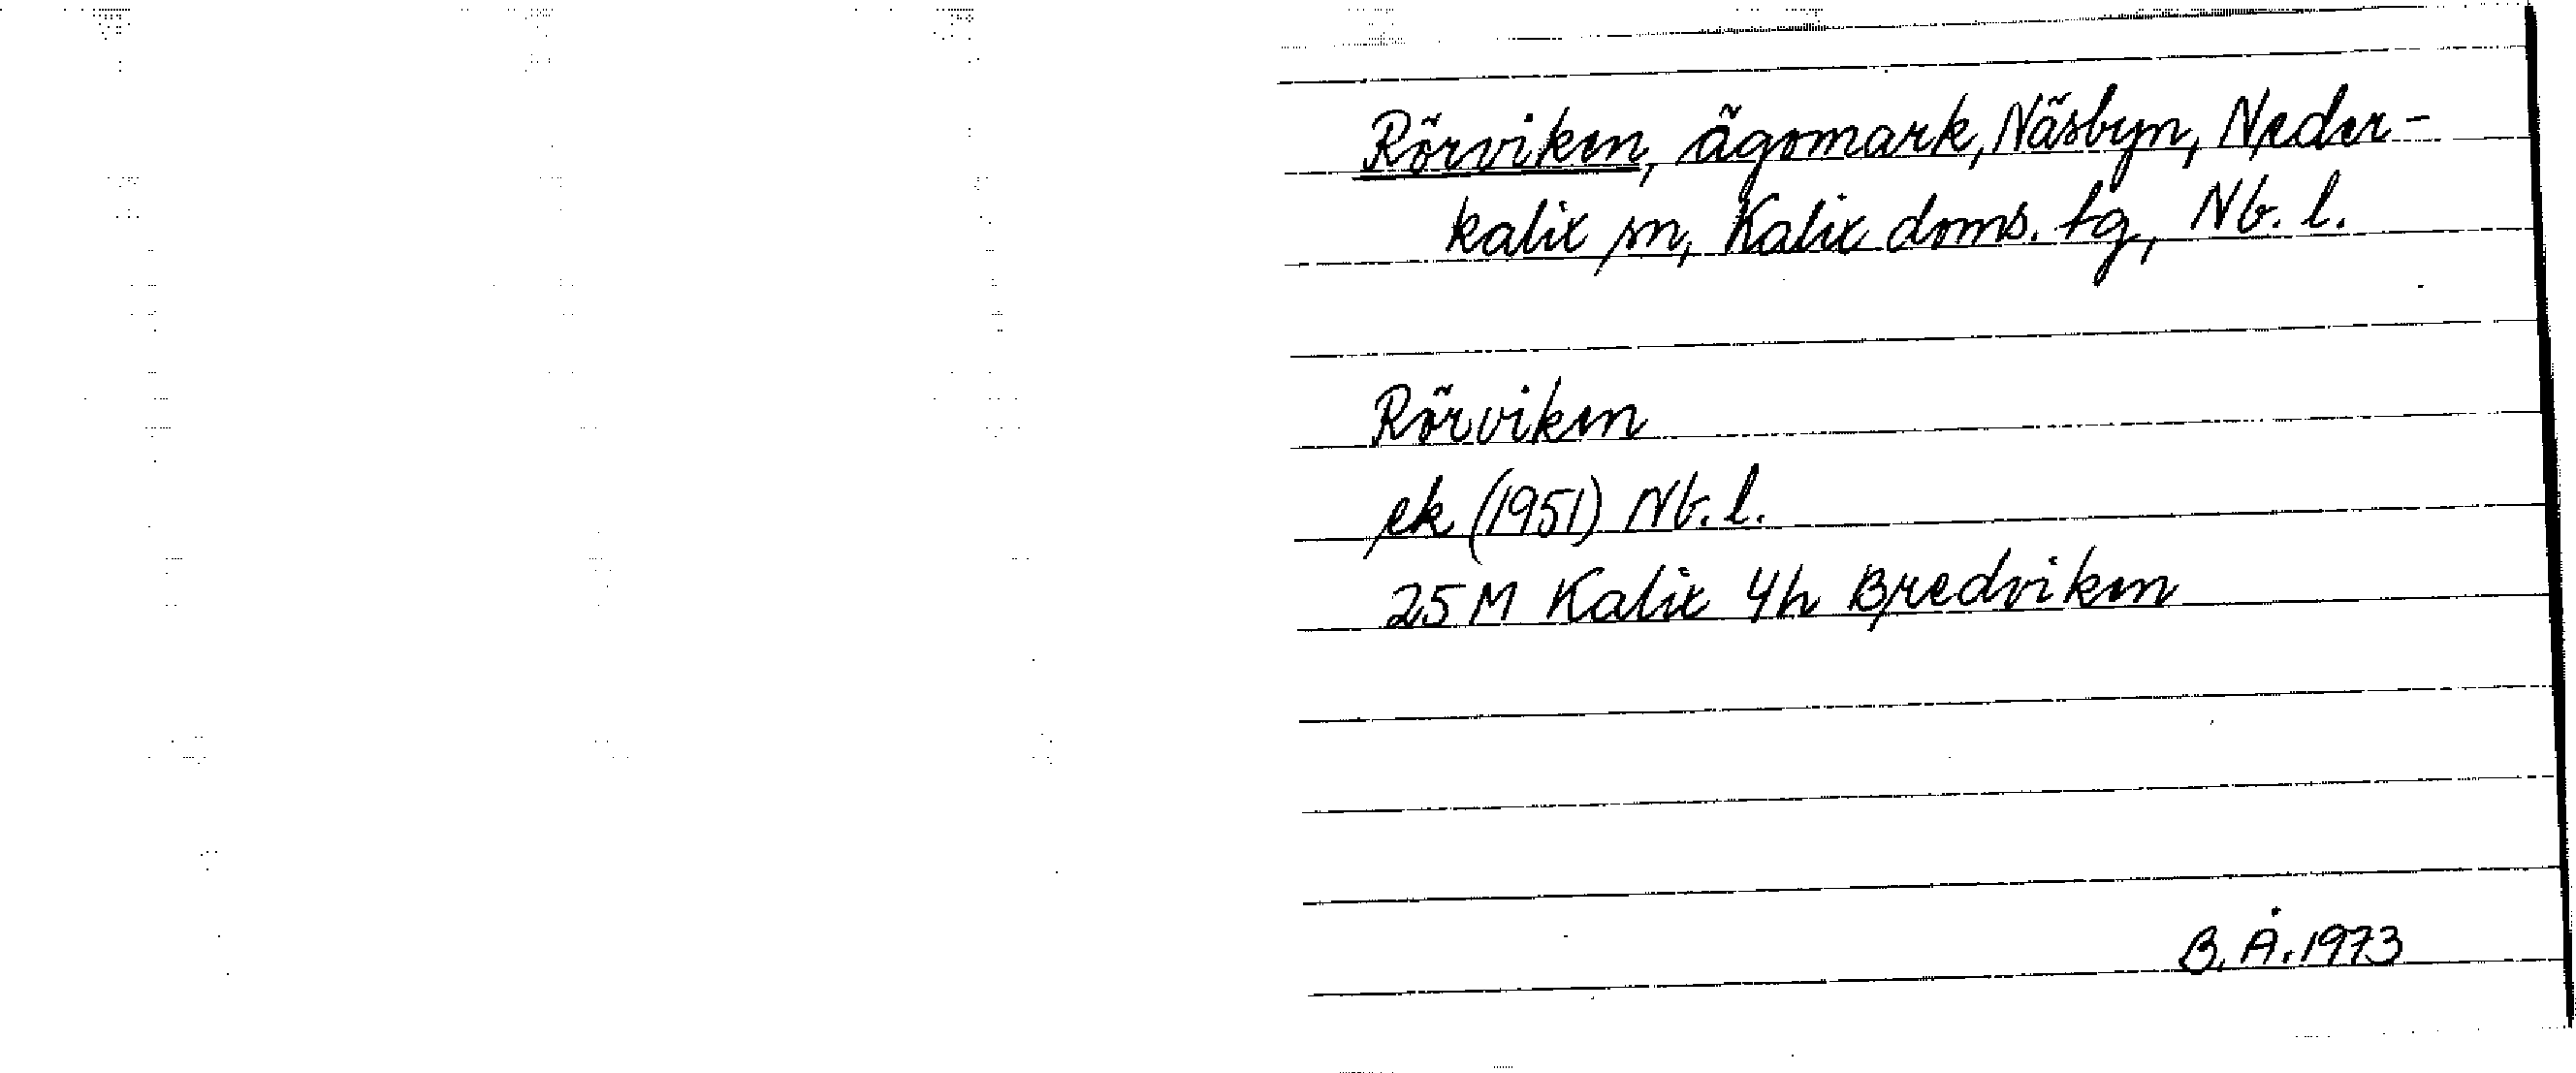 Rörviken, ägomark, Näsbyn, Neder-
kalix sn, Kalix doms. tg, Nb. l.
Rörviken
ek (1951) Nb. l.
25 M Kalix 4h Bredviken
B. Å. 1973